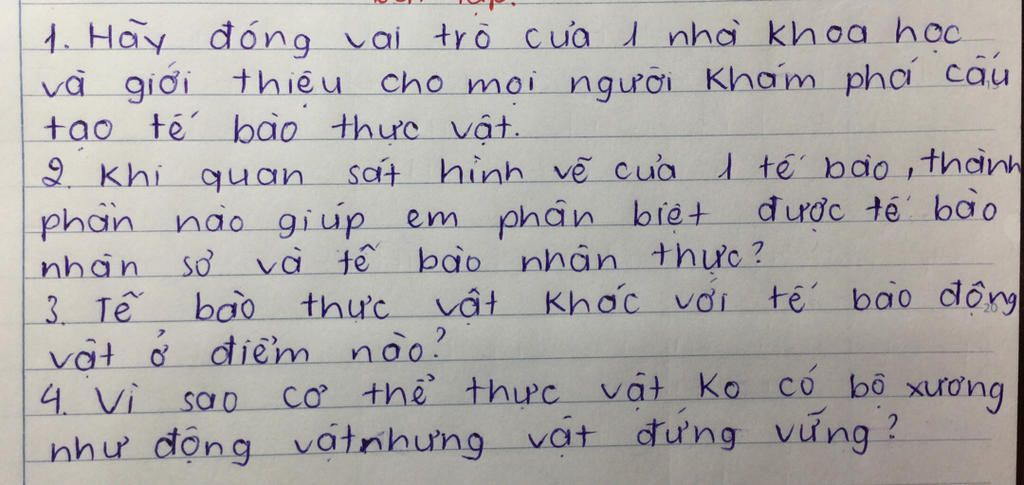 1. Hãy đóng vai trò của 1 nhà khoa học
và giới thiệu cho mọi người khám phá cấu
tạo tế bào thực vật.
2. Khi quan sát hình vẽ của 1 tế bào, thành
phần nào giúp em phân biệt được tế bào
nhân sơ và tế bào nhân thực?
3. Tế bào thực vật khác với tế bào động
vật ở điểm nào?
4. Vì sao cơ thể thực vật ko có bộ xương
như động vật nhưng vật đứng vững?